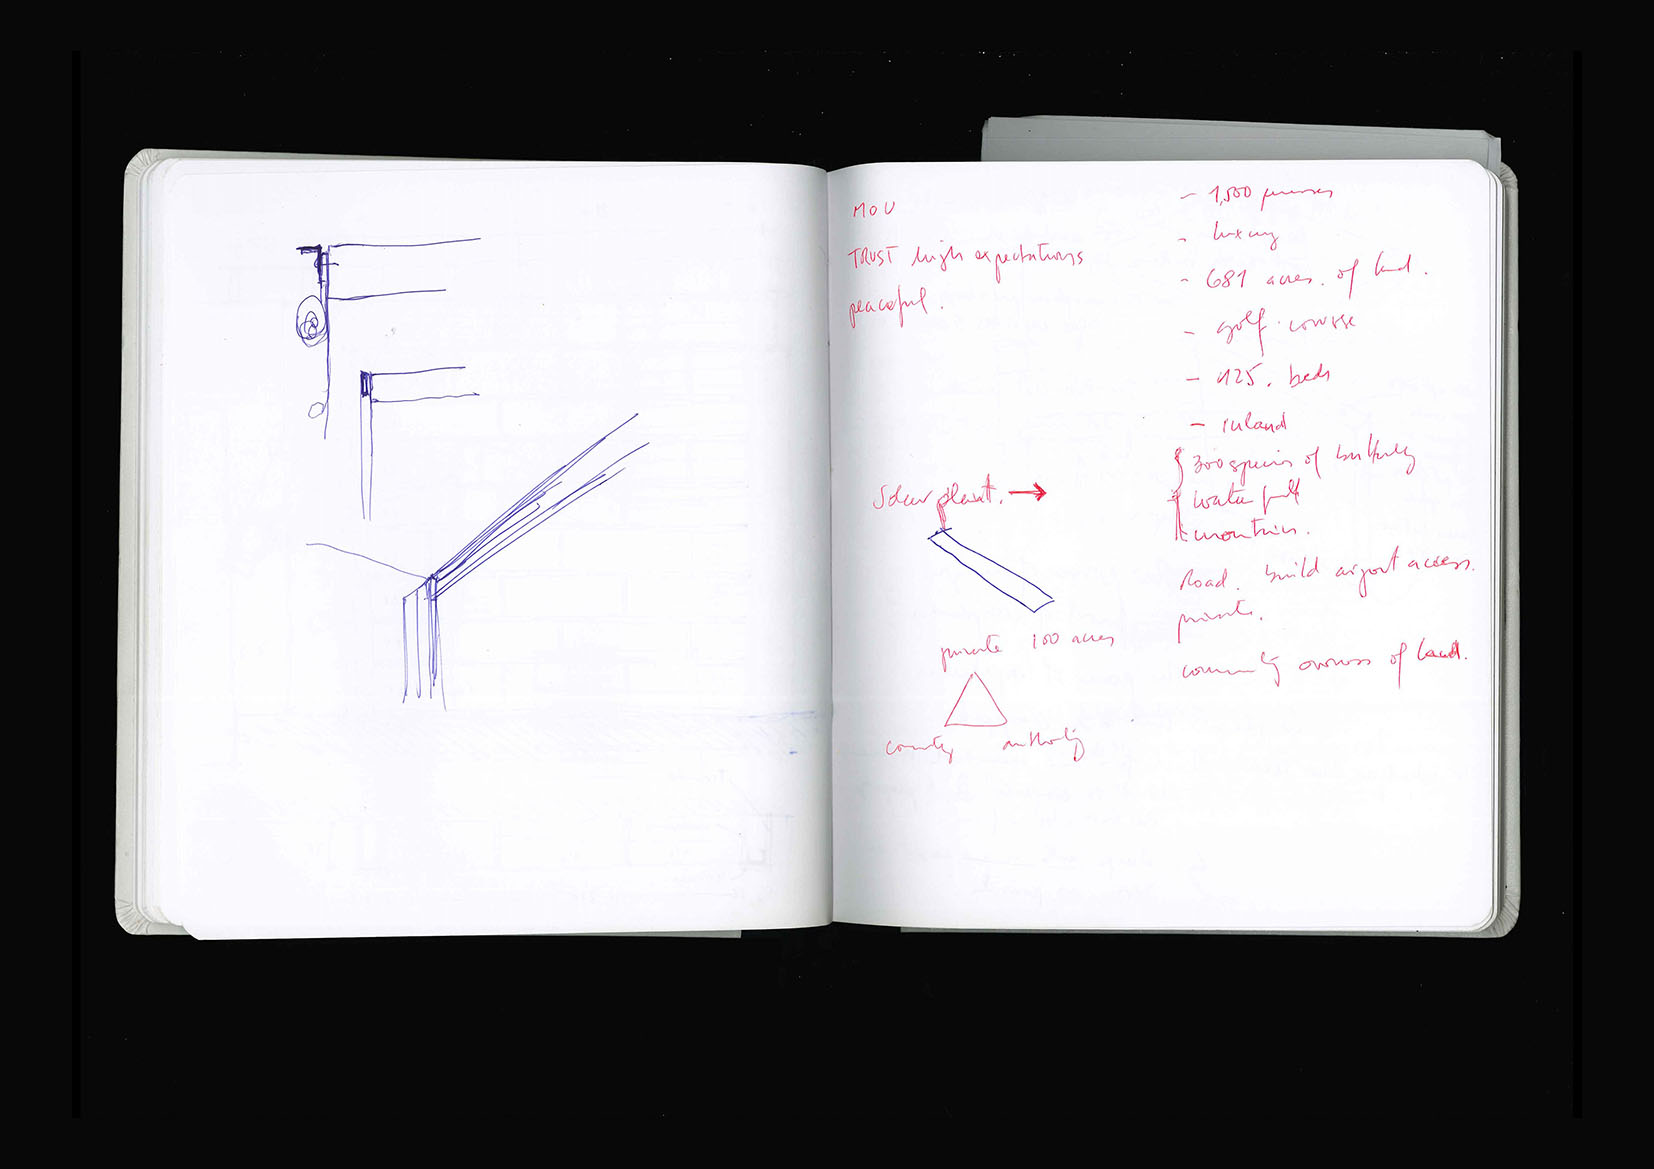 MOU
TRUST high expectations
peaceful.
Solar plant.
private 100 acres
authority
- 1,500
- luxury
- 681 acres. of land.
- golf course
- 125. beds
- inland
300 species of butterfly
water fall
mountains.
Road. build airport access.
private.
community owness of land.